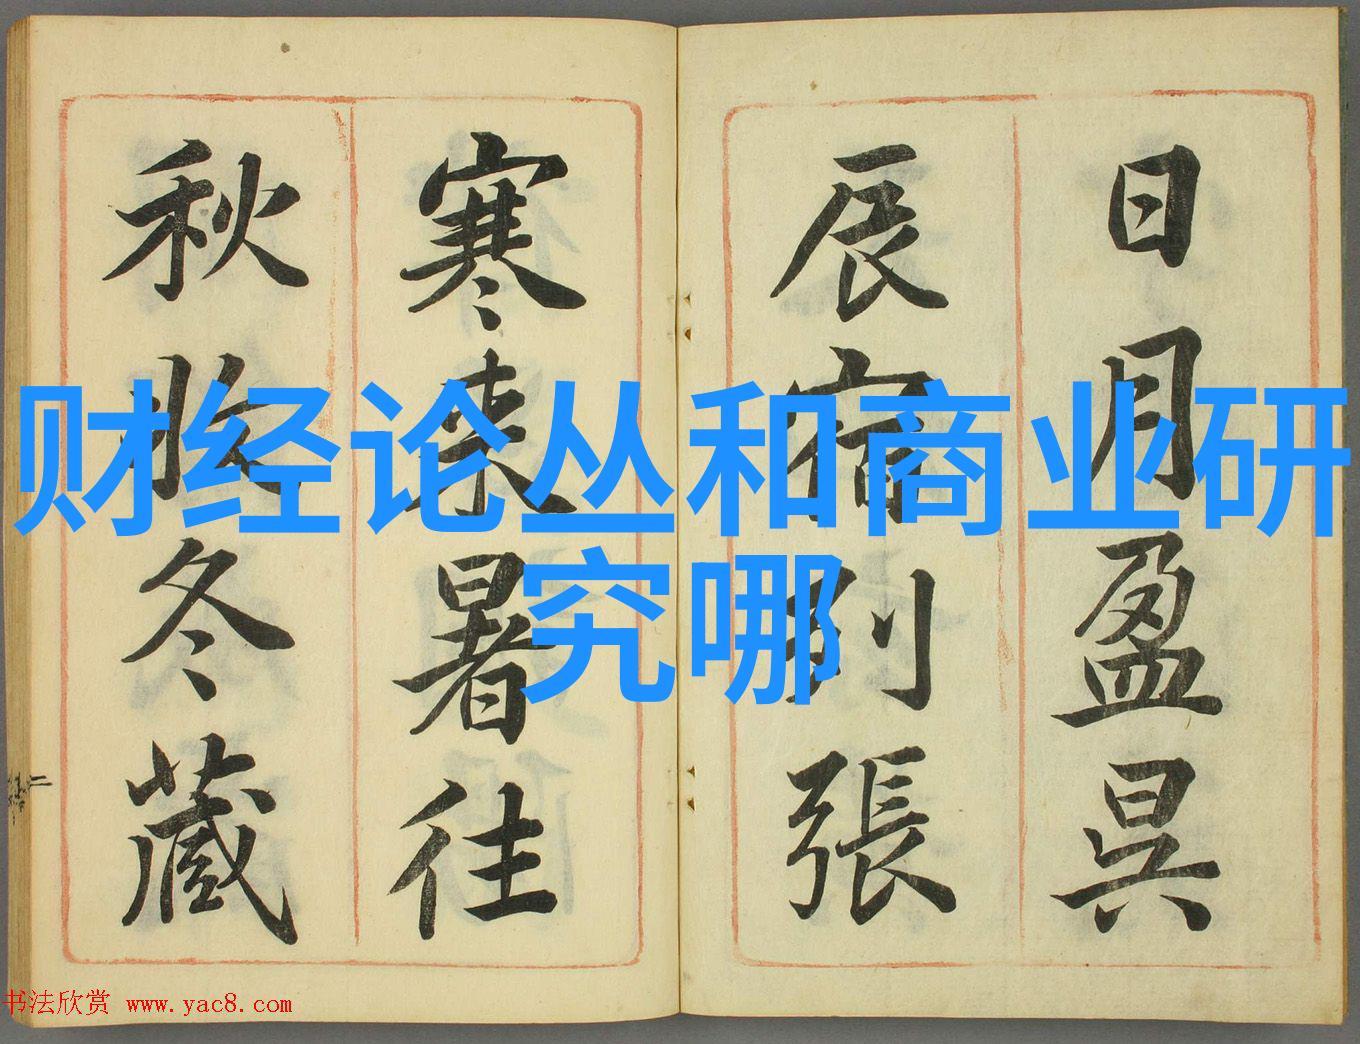 日月盈昃
辰宿列張
寒来暑往
秋收冬藏
财经论丛和商业研
究哪
书法欣赏 www.yac8.com